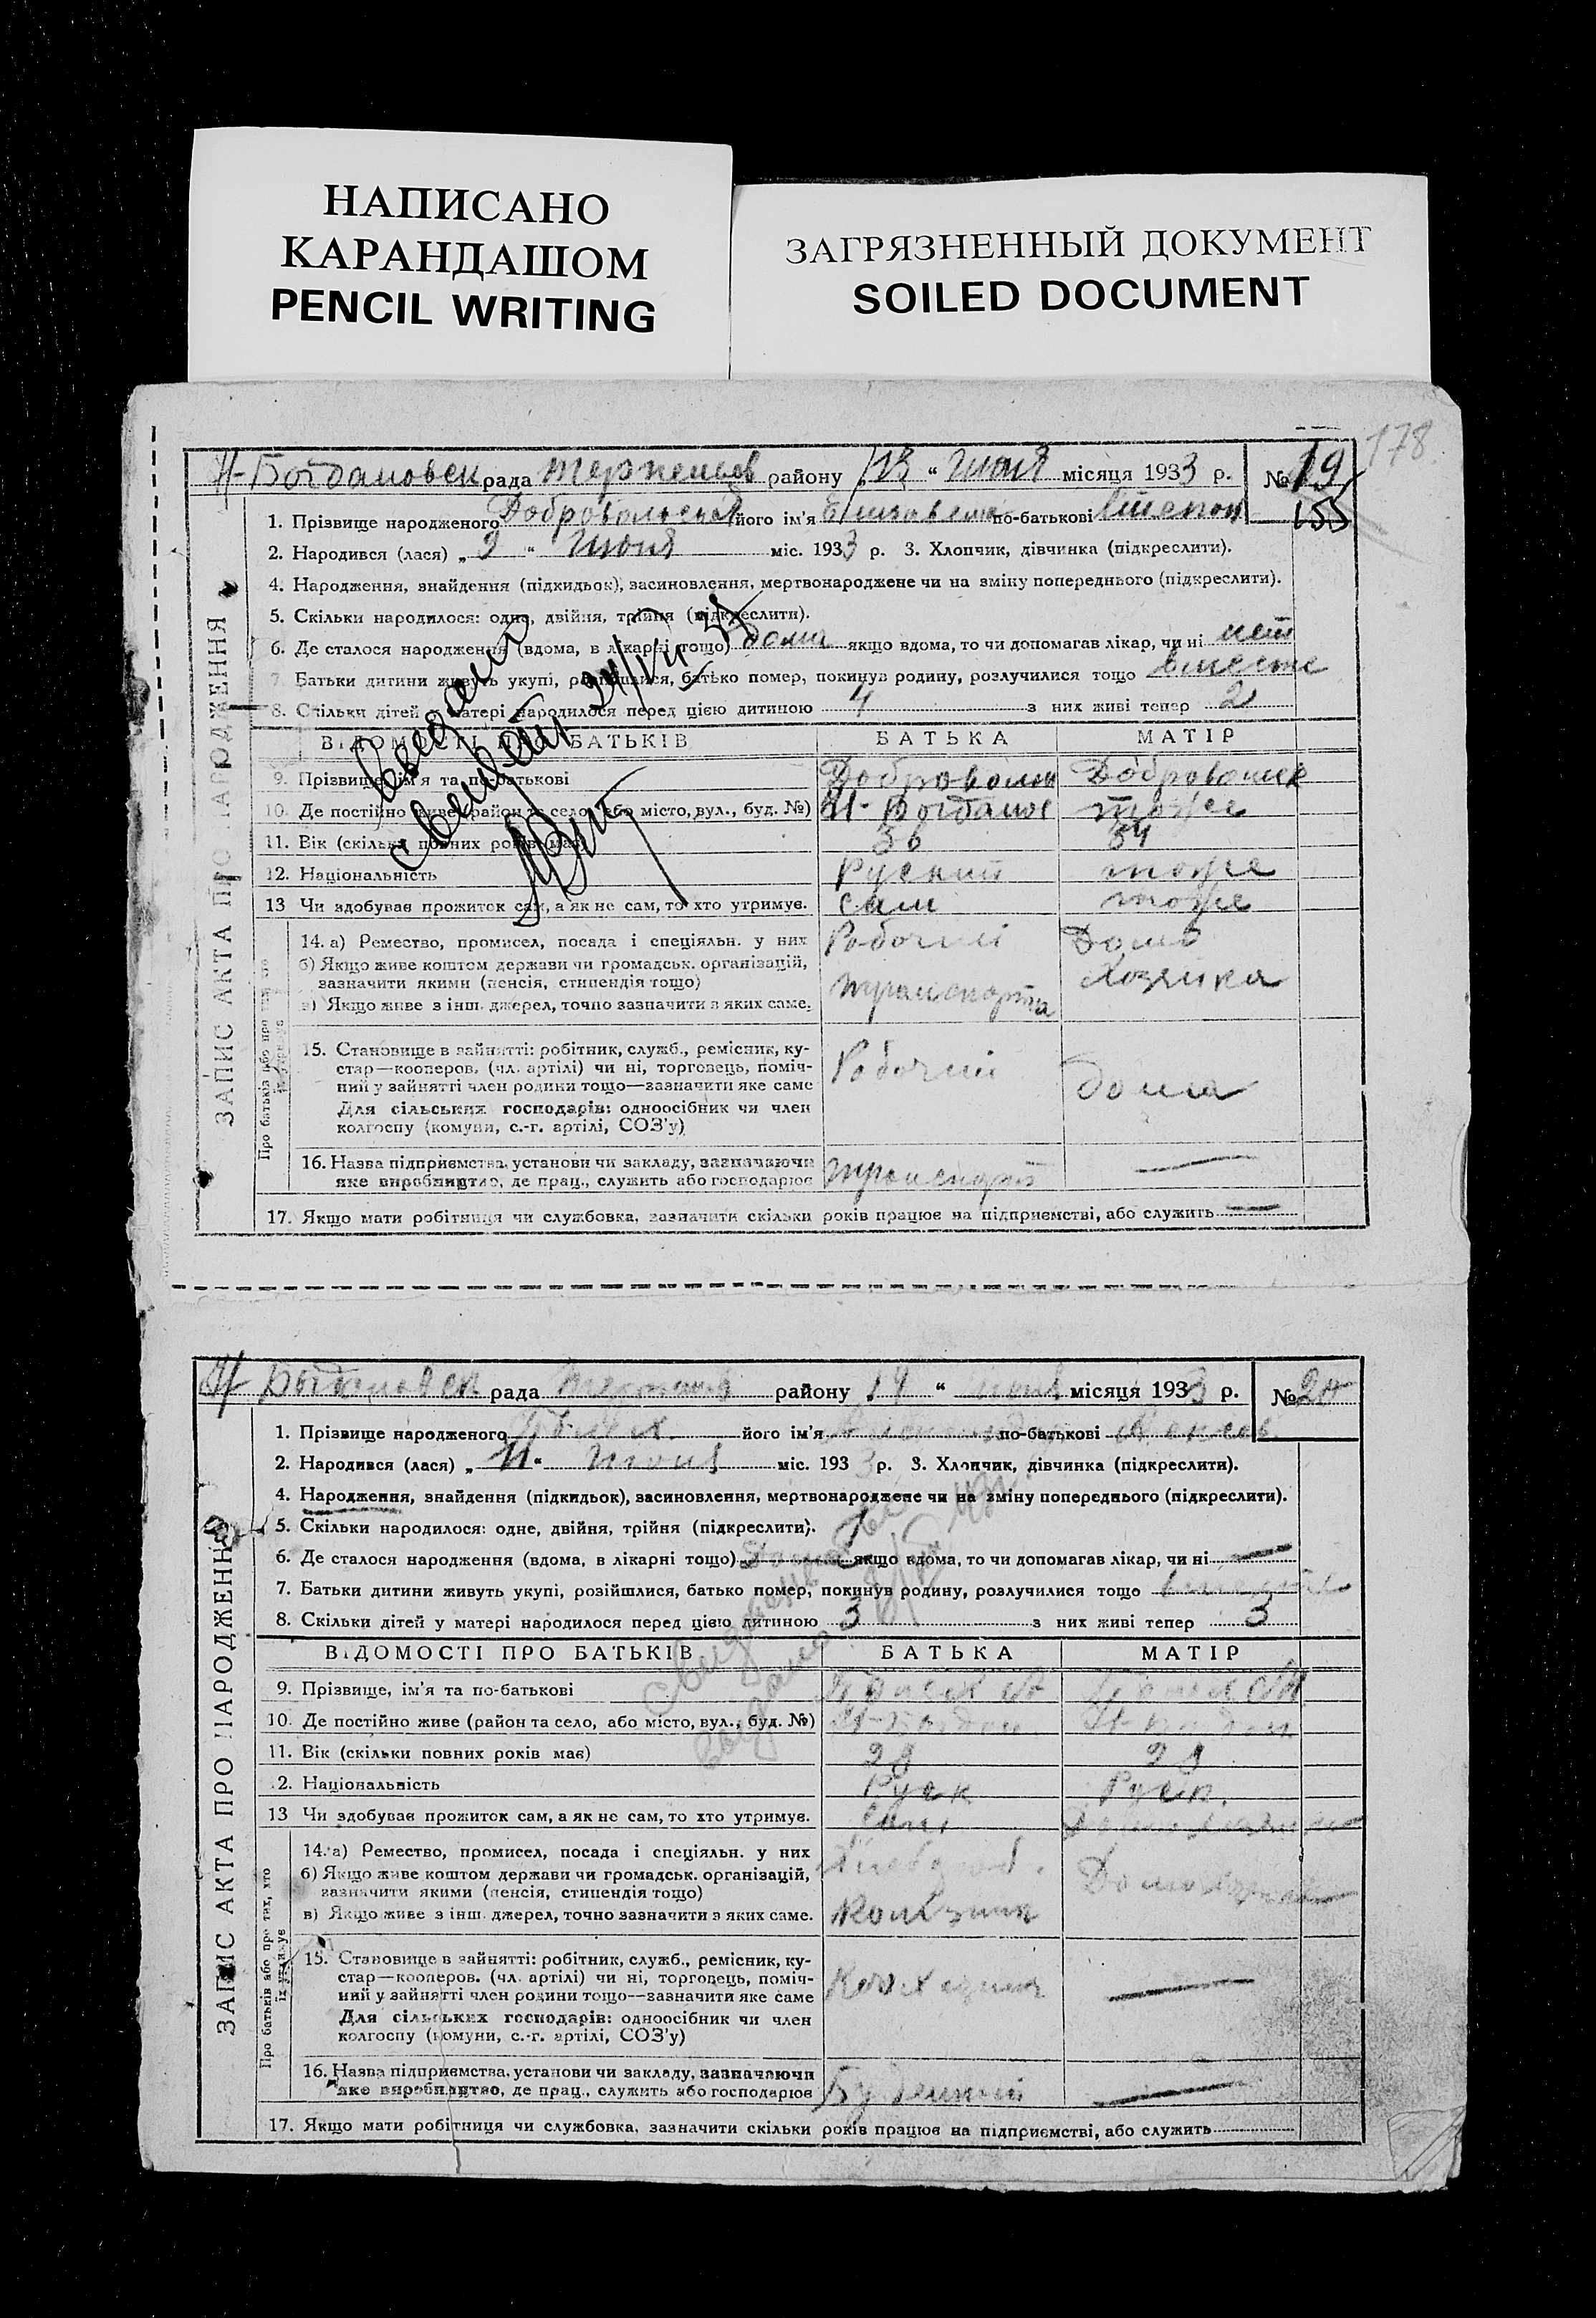 НАПИСАНО
КАРАНДАШОМ
PENCIL WRITING
ЗАГРЯЗНЕННЫЙ ДОКУМЕНТ
SOILED DOCUMENT
178
Н-Богдановск рада Терпеньев району „13 “ Июня місяця 1933 р. № 19
155
ЗАПИС АКТА ПРО НАРОДЖЕННЯ
1. Прізвище народженого Добровольская його ім'я Елизавета по-батькові Степан
2. Народився (лася) „ 9 “ Июня міс. 1933 р. 3. Хлопчик, дівчинка (підкреслити).
4. Народження, знайдення (підкидьок), засиновлення, мертвонароджене чи на зміну попереднього (підкреслити).
5. Скільки народилося: одне, двійня, трійня (підкреслити).
6. Де сталося народження (вдома, в лікарні тощо) дома якщо вдома, то чи допомагав лікар, чи ні нет
7. Батьки дитини живуть укупі, розійшлися, батько помер, покинув родину, розлучилися тощо вместе
8. Скільки дітей у матері народилося перед цією дитиною 4 з них живі тепер 2
ВІДОМОСТІ ПРО БАТЬКІВ БАТЬКА МАТІР
9. Прізвище, ім'я та по-батькові Добровольск Добровольск
10. Де постійно живе (район та село, або місто, вул., буд. №) Н-Богданов тоже
11. Вік (скільки повних років має) 36 34
12. Національність Руский тоже
13 Чи здобуває прожиток сам, а як не сам, то хто утримує. сам тоже
Про батьків або про тих, хто їх утримує
14. а) Ремество, промисел, посада і спеціяльн. у них Рабочий Домо
б) Якщо живе коштом держави чи громадськ. організацій,
зазначити якими (пенсія, стипендія тощо) транспорта Хозяйка
в) Якщо живе з інш. джерел, точно зазначити з яких саме.
15. Становище в зайнятті: робітник, служб., ремісник, ку-
стар—кооперов. (чл. артілі) чи ні, торговець, поміч- Рабочий
ний у зайнятті член родини тощо—зазначити яке саме дома
Для сільських господарів: одноосібник чи член
колгоспу (комуни, с.-г. артілі, СОЗ'у)
16. Назва підприємства, установи чи закладу, зазначаючи
яке виробництво, де прац., служить або господарює транспорт —
17. Якщо мати робітниця чи службовка, зазначити скільки років працює на підприємстві, або служить —
Н Богдановск рада району „14 “ июня місяця 1933 р. № 20
ЗАПИС АКТА ПРО НАРОДЖЕННЯ
1. Прізвище народженого його ім'я по-батькові
2. Народився (лася) „ 11 “ Июня міс. 193 3 р. 3. Хлопчик, дівчинка (підкреслити).
4. Народження, знайдення (підкидьок), засиновлення, мертвонароджене чи на зміну попереднього (підкреслити).
5. Скільки народилося: одне, двійня, трійня (підкреслити). 1
6. Де сталося народження (вдома, в лікарні тощо) дома якщо вдома, то чи допомагав лікар, чи ні —
7. Батьки дитини живуть укупі, розійшлися, батько помер, покинув родину, розлучилися тощо вместе
8. Скільки дітей у матері народилося перед цією дитиною 3 з них живі тепер 3
ВІДОМОСТІ ПРО БАТЬКІВ БАТЬКА МАТІР
9. Прізвище, ім'я та по-батькові
10. Де постійно живе (район та село, або місто, вул., буд. №) Н-Богдан Н-Богдан
11. Вік (скільки повних років має) 28 28
12. Національність Руск Руск.
13 Чи здобуває прожиток сам, а як не сам, то хто утримує. Сам
Про батьків або про тих, хто їх утримує
14. а) Ремество, промисел, посада і спеціяльн. у них
б) Якщо живе коштом держави чи громадськ. організацій,
зазначити якими (пенсія, стипендія тощо)
в) Якщо живе з інш. джерел, точно зазначити з яких саме.
15. Становище в зайнятті: робітник, служб., ремісник, ку-
стар—кооперов. (чл. артілі) чи ні, торговець, поміч- —
ний у зайнятті член родини тощо—зазначити яке саме
Для сільських господарів: одноосібник чи член
колгоспу (комуни, с.-г. артілі, СОЗ'у)
16. Назва підприємства, установи чи закладу, зазначаючи
яке виробництво, де прац., служить або господарює —
17. Якщо мати робітниця чи службовка, зазначити скільки років працює на підприємстві, або служить